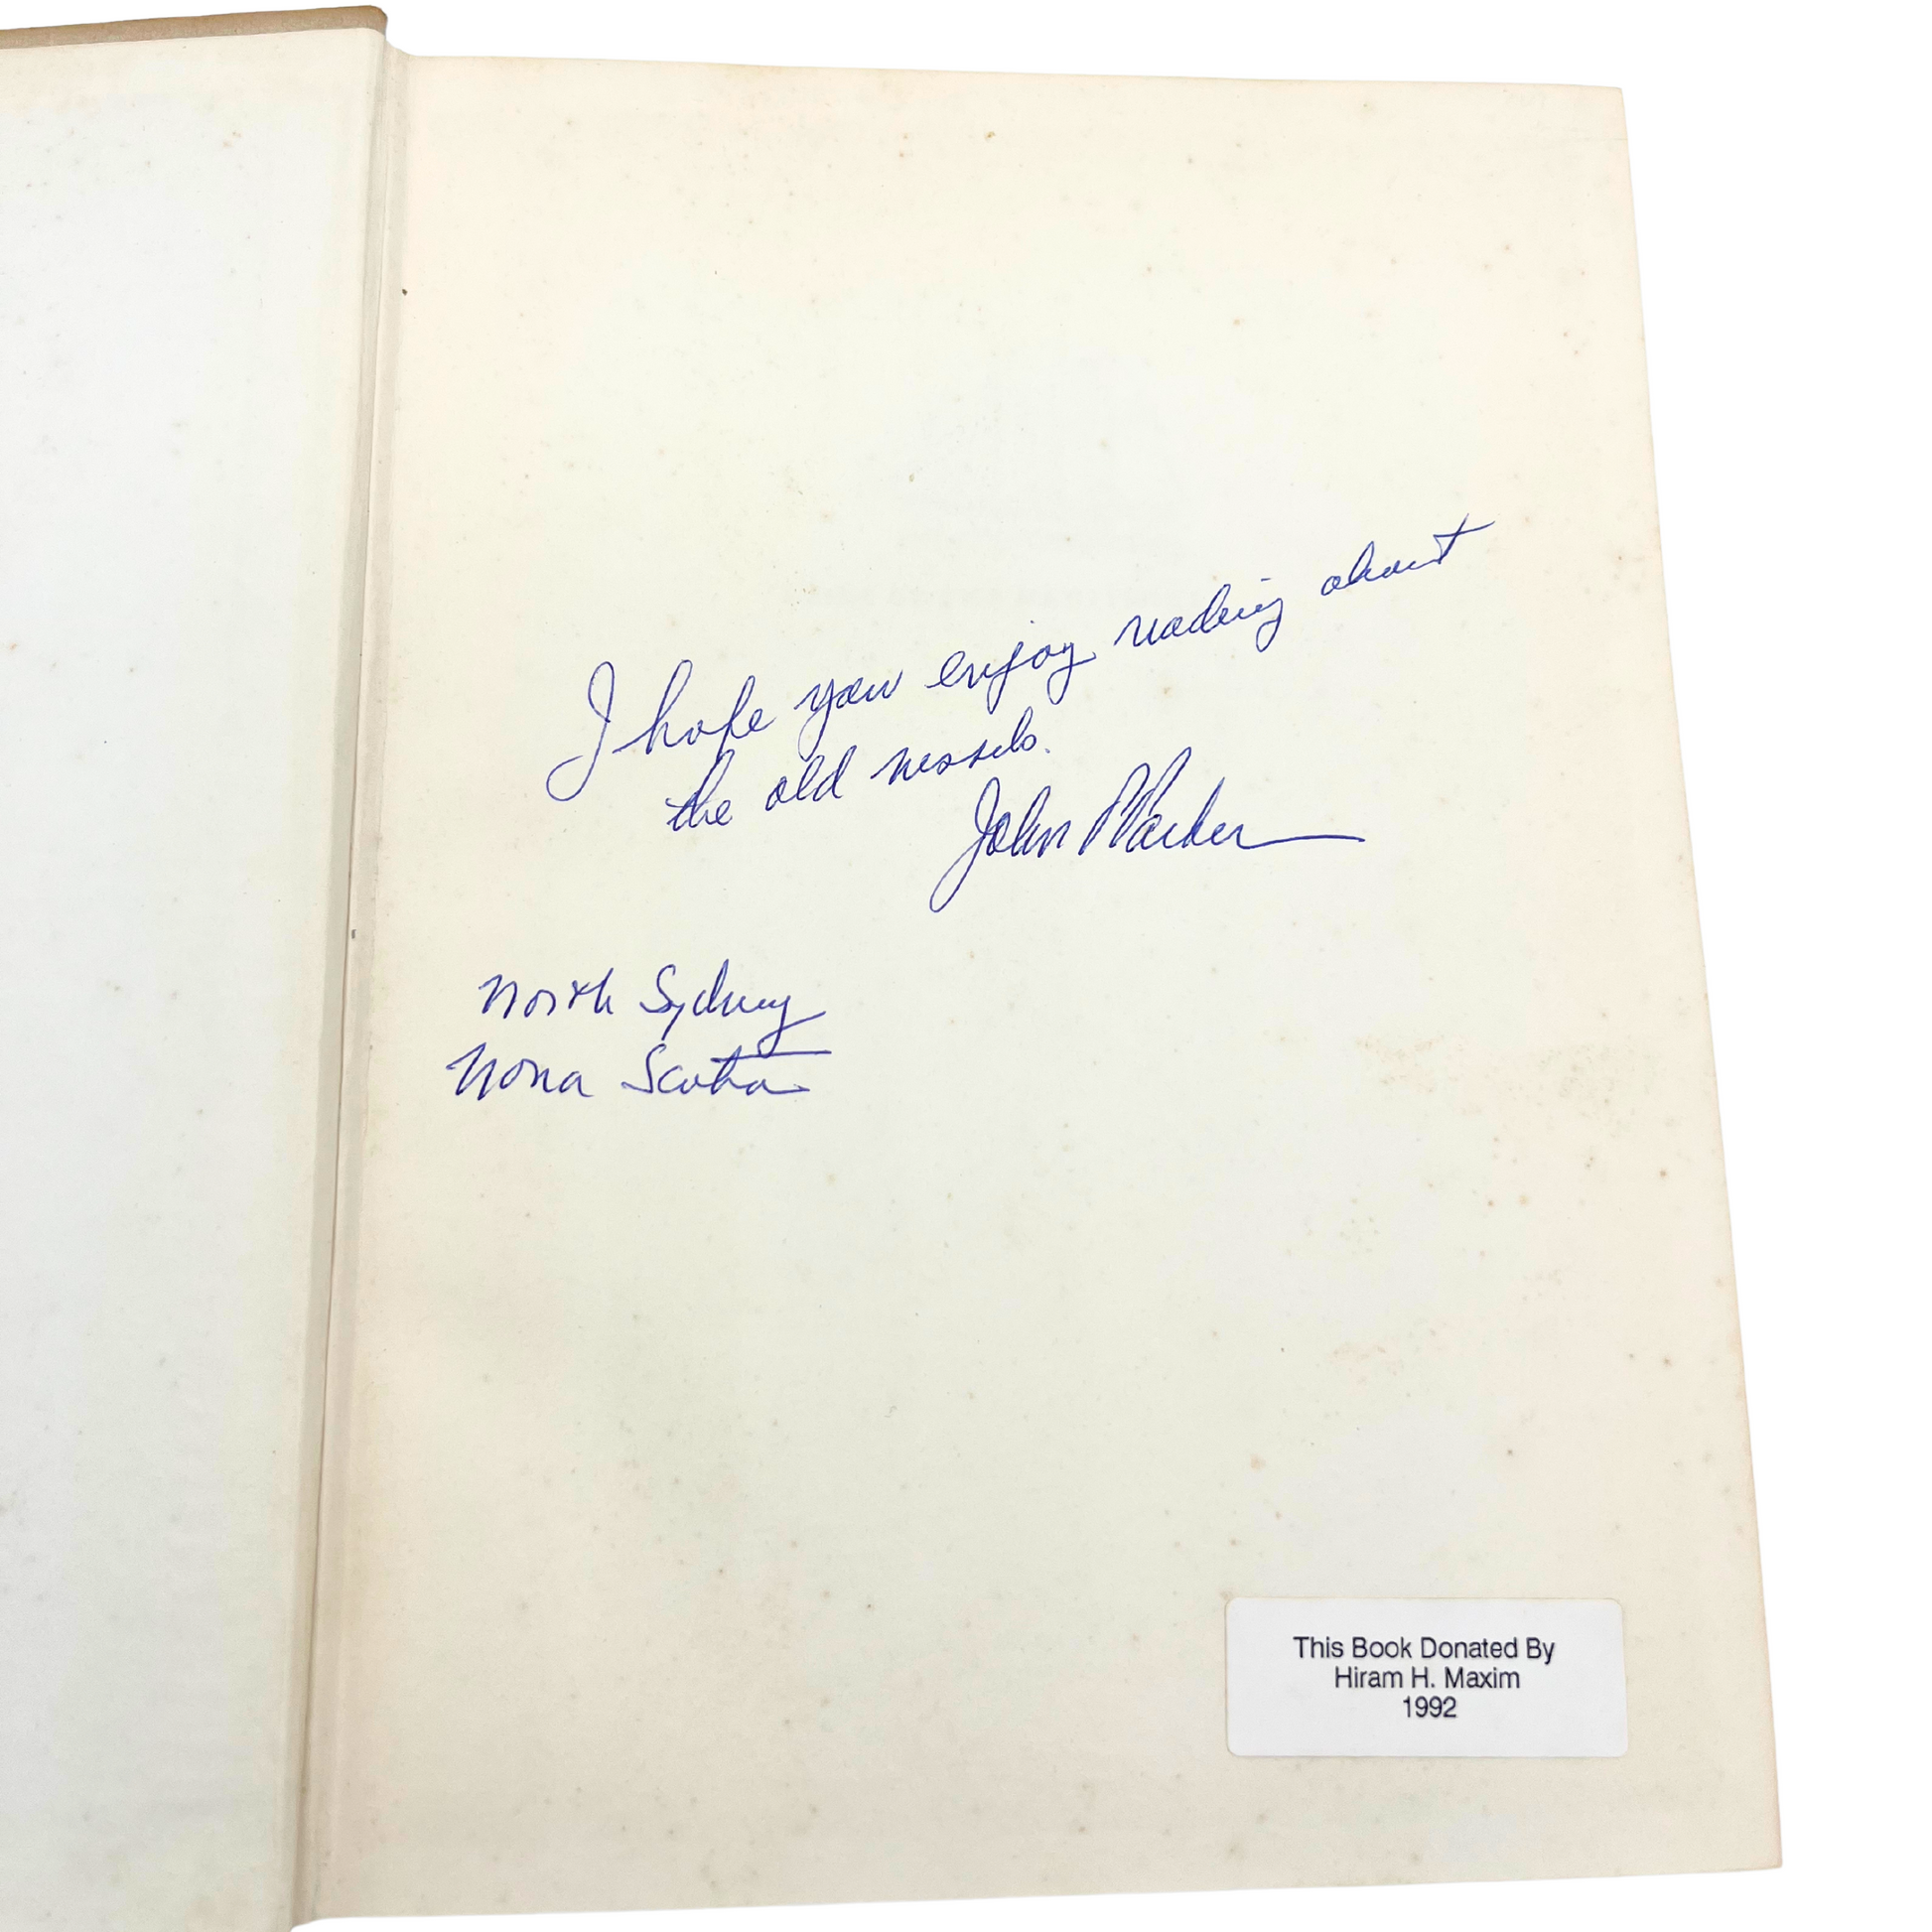 I hope you enjoy reading about
the old vessels.
John Parker
North Sydney
Nova Scotia
This Book Donated By
Hiram H. Maxim
1992